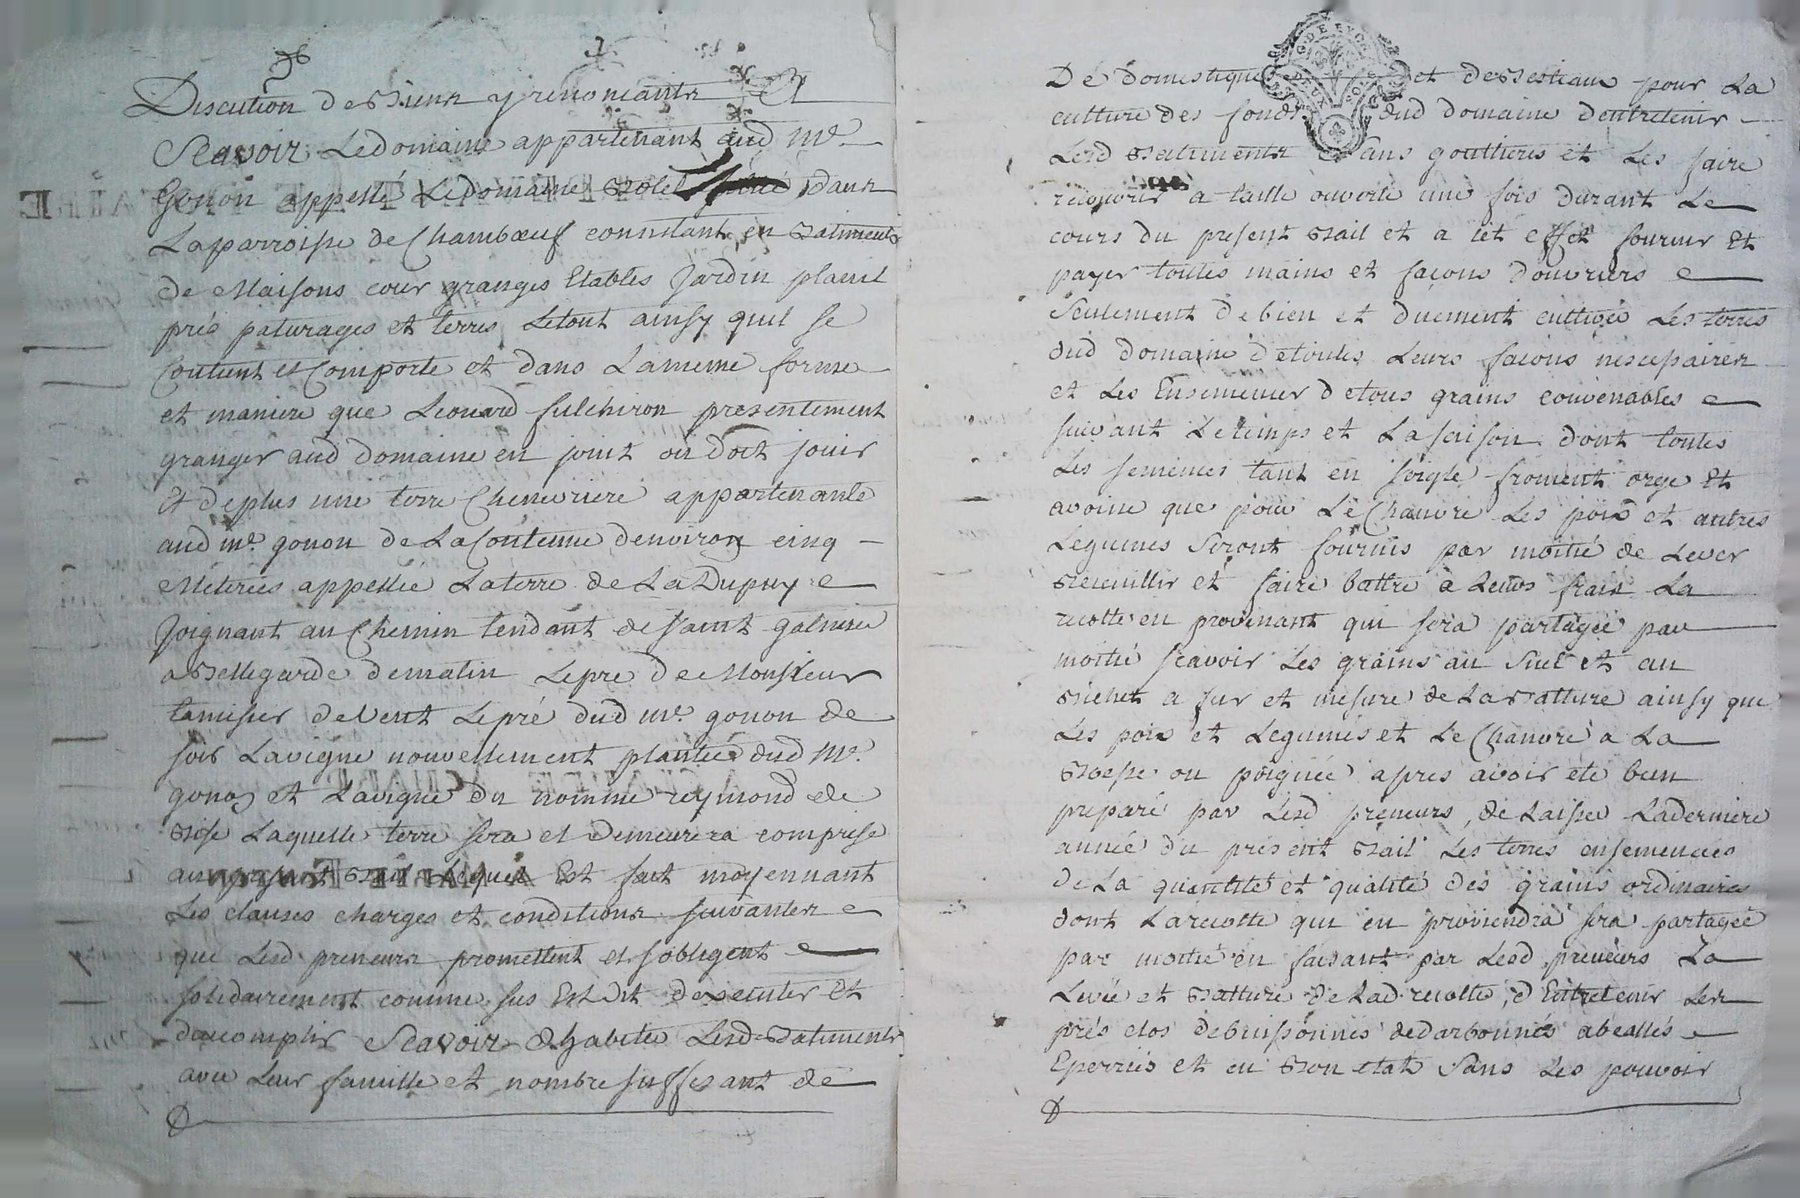 Discution de Biens y renoncants Et
Scavoir Le domaine appartenant aud Mr
Gonon appellé Le domaine dans
La parroisse de Chambœuf consistant en Batiments
de Maisons cour granges Etables Jardin plassil
prés paturages et terres Le tout ainsy quil se
Contient et Comporte et dans La meme forme
et maniere que Leonard fulchiron presentement
granger aud domaine en jouit ou doit jouir
Et de plus une terre Cheneviere appartenante
aud mr. gonon de La Contenue denviron cinq
Méterées appellée La terre de La Dupuy
Joignant au Chemin tendant de saint galmier
a Bellegarde de matin Le pre de Monsieur
tamisier de Vent Le pré dud mr. gonon de
soir La vigne nouvellement plantée dud Mr.
gonon et La vigne du nommé reymond de
Bise Laquelle terre sera et demeurera comprise
au present Bail Lequel Est fait moyennant
Les clauses charges et conditions suivantes
que Lesd preneurs promettent et sobligent
solidairement comme sus Est dit dexecuter Et
dacomplir Scavoir dhabiter Lesd Batiments
avec Leur famille et nombre suffisant de
De domestiques et de Bestiaux pour La
culture des fonds dud domaine dentretenir
Lesd Batiments Sans gouttieres et Les faire
recouvrir a taille ouverte une fois durant Le
cours du present Bail et a cet effet fournir Et
payer toutes mains et façons douvriers
Seulement de bien et duement cultiver Les terres
dud domaine de toutes Leurs façons nescepaires
et Les Ensemencer de tous grains convenables
suivant Le temps et La saison dont toutes
Les semences tant en soigle froment orge Et
avoine que pour Le Chanvre Les pois et autres
Legumes Seront fournis par moitié de Lever
Recuillir et faire battre a Leurs frais La
recolte en provenant qui sera partagée par
moitié scavoir Les grains au Suel et au
Bichet a fur et mesure de La Batture ainsy que
Les pois et Legumes et Le Chanvre a La
ou poignée apres avoir été bien
preparé par Lesd preneurs, de Laisser La derniere
année du present Bail Les terres ensemencées
de La quantité et qualité des grains ordinaires
dont La recolte qui en proviendra sera partagée
par moitié en faisant par Lesd preneurs La
Levée et Batture de Lad. recolte, d'Entretenir Les
prés clos debuissonnes dedarbonnés abeallés
Eperriés et en Bon etat Sans Les pouvoir